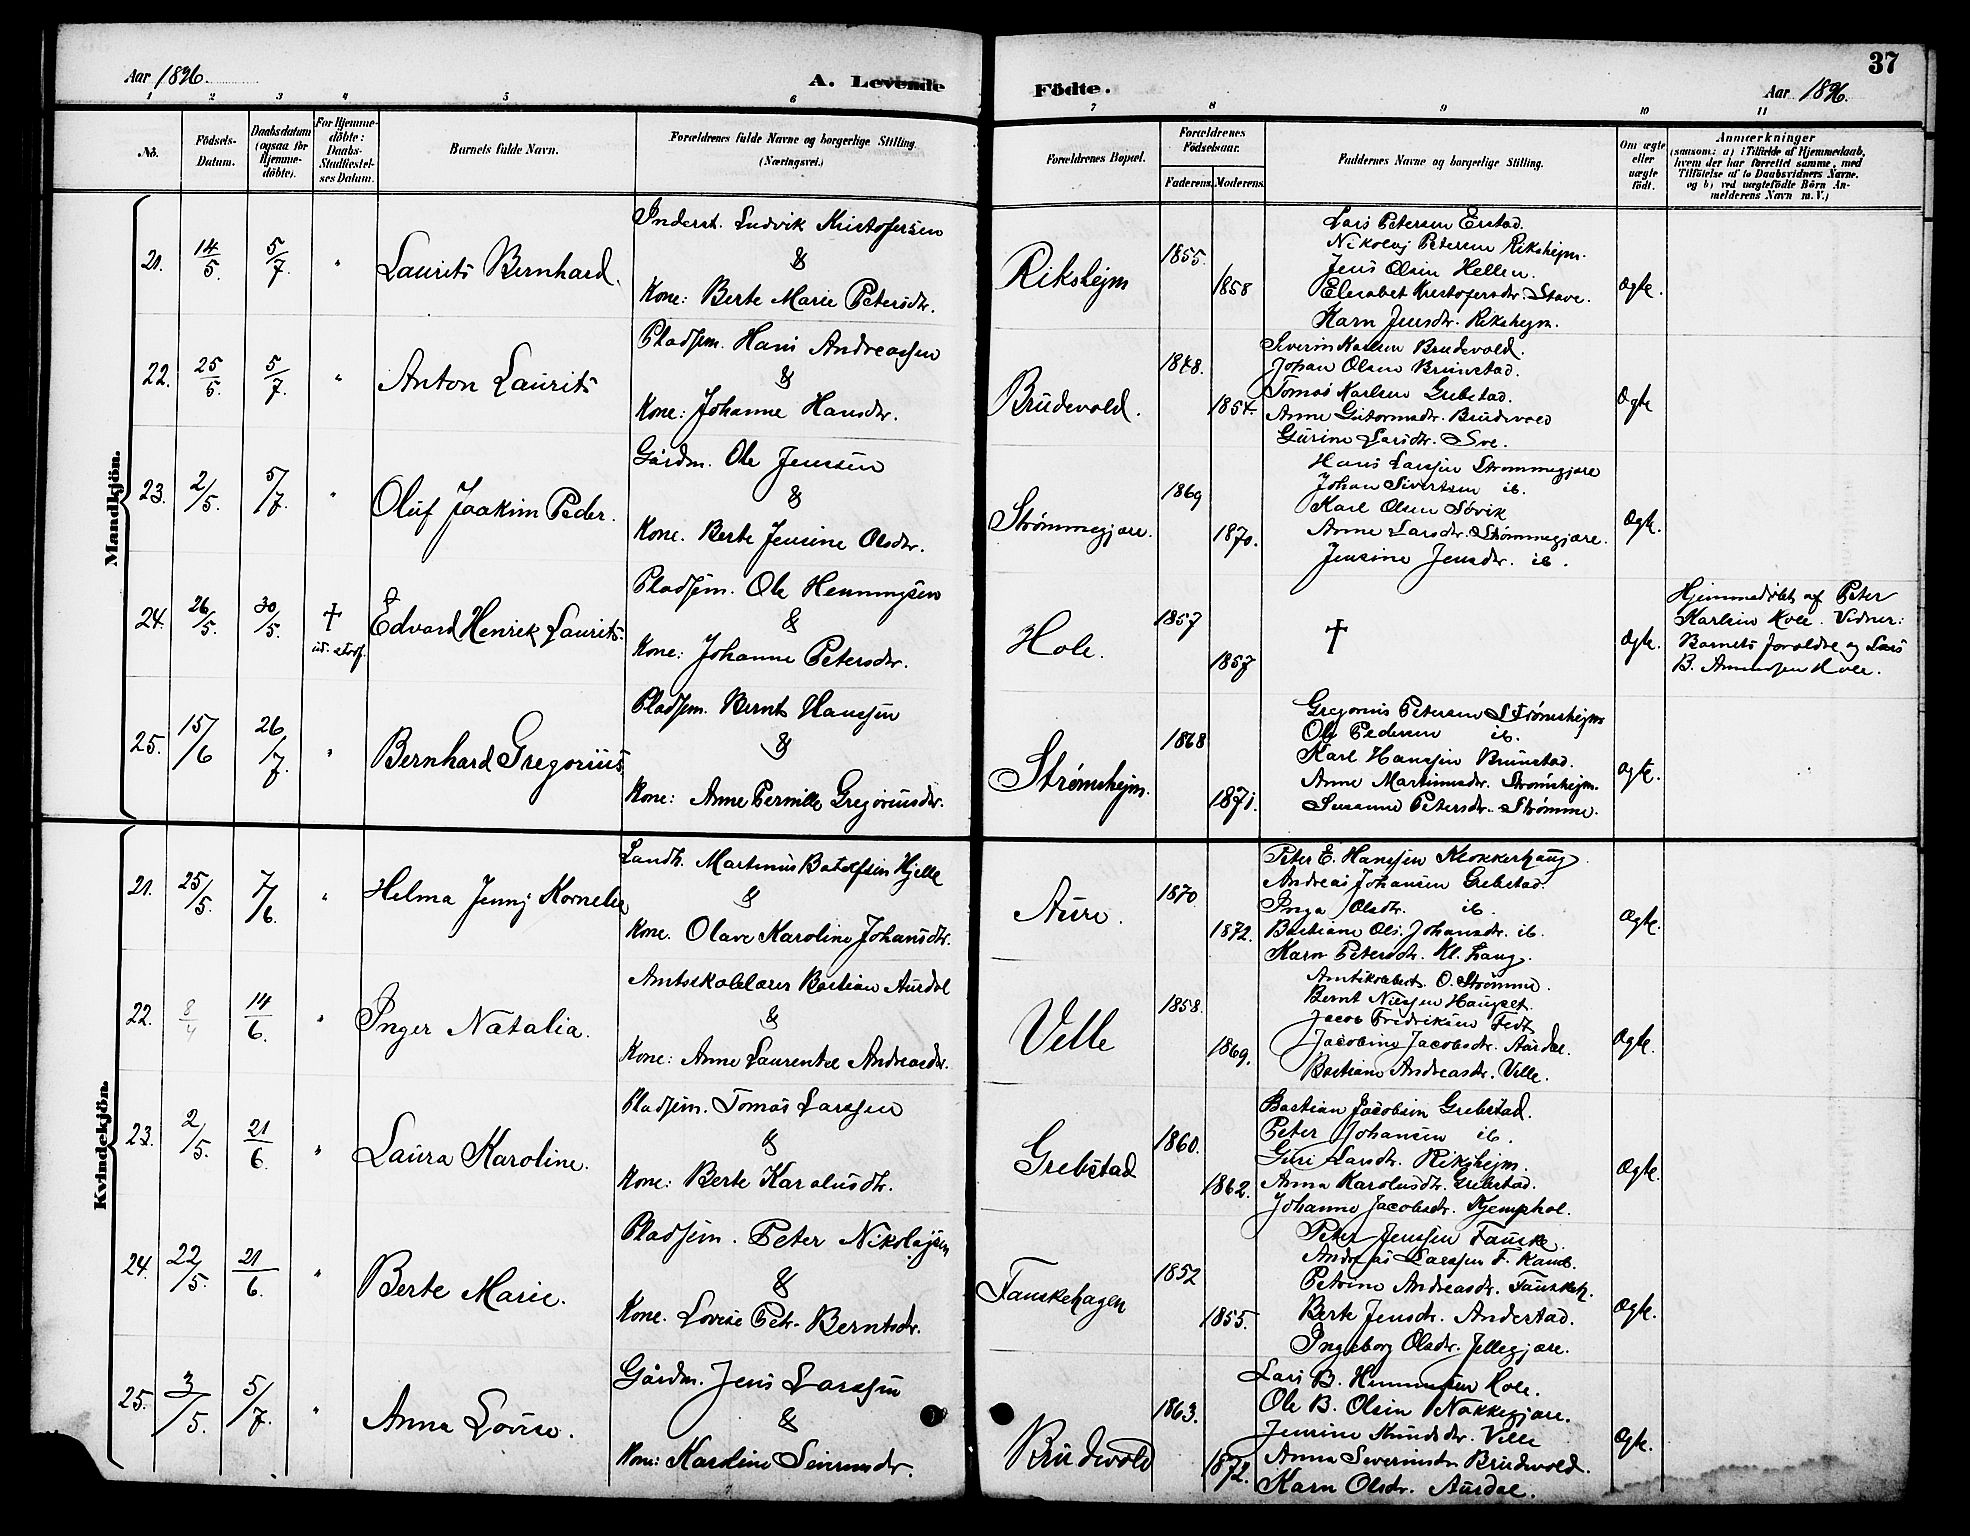 Aar 1896.
A. Levende Födte.
37
Aar 1896.
1 2 3 4 5 6 7 8 9 10 11
No.
Födsels-Datum.
Daabsdatum (ogsaa for Hjemme-döbte).
For Hjemme-döbte: Daabs-Stadfæstel-ses Datum.
Barnets fulde Navn.
Forældrenes fulde Navne og borgerlige Stilling (Næringsvei.)
Forældrenes Bopæl.
Forældrenes Födselsaar.
Faderens. Moderens.
Faddernes Navne og borgerlige Stilling.
Om ægte eller uægte født.
Anmærkninger
(saasom: a) i Tilfælde af Hjemmedaab, hvem der har forrettet samme, med Tilföielse af to Daabsvidners Navne, og b) ved uægtefödte Börn An-melderens Navn m. V.)
Mandkjön.
21. 14/5. 5/7. " Laurits Bernhard.
Inderst. Ludvik Kristofersen
&
Kone: Berte Marie Petersdtr.
Rikshejm 1855. 1858
Lars Petersen Erstad.
Nikolaj Petersen Rikshejm.
Jens Olsen Hellen.
Elisabet Kristofersdtr. Stave.
Karn Jensdtr. Rikshejm.
Ægte.
22. 25/5. 5/7. " Anton Laurits
Pladsem. Hans Andreassen
&
Kone: Johanne Hansdtr.
Brudevold. 1848. 1854.
Severin Karlsen Brudevold.
Johan Olsen Brunstad.
Tomas Karlsen Grebstad.
Anne Gutormsdtr. Brudevold
Gurine Larsdtr. Sve.
Ægte
23. 2/5. 5/7. " Oluf Joakim Peder.
Gårdm. Ole Jenssen
&
Kone. Berte Jensine Olsdtr.
Strømmegjære. 1869 1870.
Hans Larssen Strømmegjære
Johan Sivertsen ib.
Karl Olsen Søvik
Anne Larsdtr. Strømmegjære.
Jensine Jensdtr. ib.
Ægte.
24. 26/5. 30/5. † Edvard Henrik Laurits.
Pladsem. Ole Henningsen
&
Kone: Johanne Petersdtr.
Hole. 1857 1857
†
Ægte.
Hjemmedøbt af Peter
Karlsen Hole. Vidner:
Barnets forældre og Lars
B. Hole.
25. 15/6 26/7. " Bernhard Gregorius
Pladsem. Bernt Hanssen
&
Kone: Anne Pernille Gregoriusdtr.
Strømshejm. 1868 1871.
Gregorius Petersen Strømshejm
Ole Pedersen ib.
Karl Hanssen Brunstad.
Anne Martinusdtr. Strømshejm.
Susanne Petersdtr. Strømme.
Ægte.
Kvindekjön.
21. 25/5. 7/6. " Helma Jenny Kornelia
Landh. Martinus Botolfsen Hjelle
&
Kone. Olave Karoline Johansdtr.
Aure. 1870 1872.
Peter E. Hanssen Klokkerhaug.
Andreas Johansen Grebstad.
Inga Olsdtr. ib.
Bastiane Ols. Johansdtr. ib.
Karn Petersdtr. Kl. haug.
Ægte.
22. 8/4 14/6. " Inger Natalia.
Amtsskolelærer Bastian Aurdal
&
Kone: Anne Laurentse Andreasdtr.
Velle 1858. 1869.
O. Strømme.
Bernt Haugset.
Jacob Fredriksen Fedt
Jacobine Jacobsdtr. Aurdal.
Bastiane Andreasdtr. Velle.
Ægte.
23. 2/5. 21/6. " Laura Karoline.
Pladsem. Tomas Larssen
&
Kone: Berte Karolusdtr.
Grebstad 1860. 1862.
Bastian Jacobsen Grebstad.
Peter Johansen ib.
Guri Larsdtr. Rikshejm.
Anna Karolusdtr. Grebstad.
Johanne Jacobsdtr. Kjemphol.
Ægte.
24. 22/5. 21/6. " Berte Marie.
Pladsem. Peter Nikolajsen
&
Kone. Lovise Petr. Berntsdtr.
Fauskehagen 1852 1855.
Peter Jenssen Fauske.
Andreas Larssen F.
Petrine Andreasdtr. Fauskeh.
Berte Jensdtr. Andestad.
Ingeborg Olsdtr. Jellegjære.
Ægte.
25. 3/5. 5/7. " Anna Lovise.
Gårdm. Jens Larssen
&
Kone: Karoline Severinsdtr.
Brudevold 1863. 1872.
Lars B. Hole.
Ole B. Olsen Nakkegjære.
Jensine Knudsdtr. Velle
Anna Severinsdtr. Brudevold.
Karn Olsdtr. Aurdal.
Ægte.